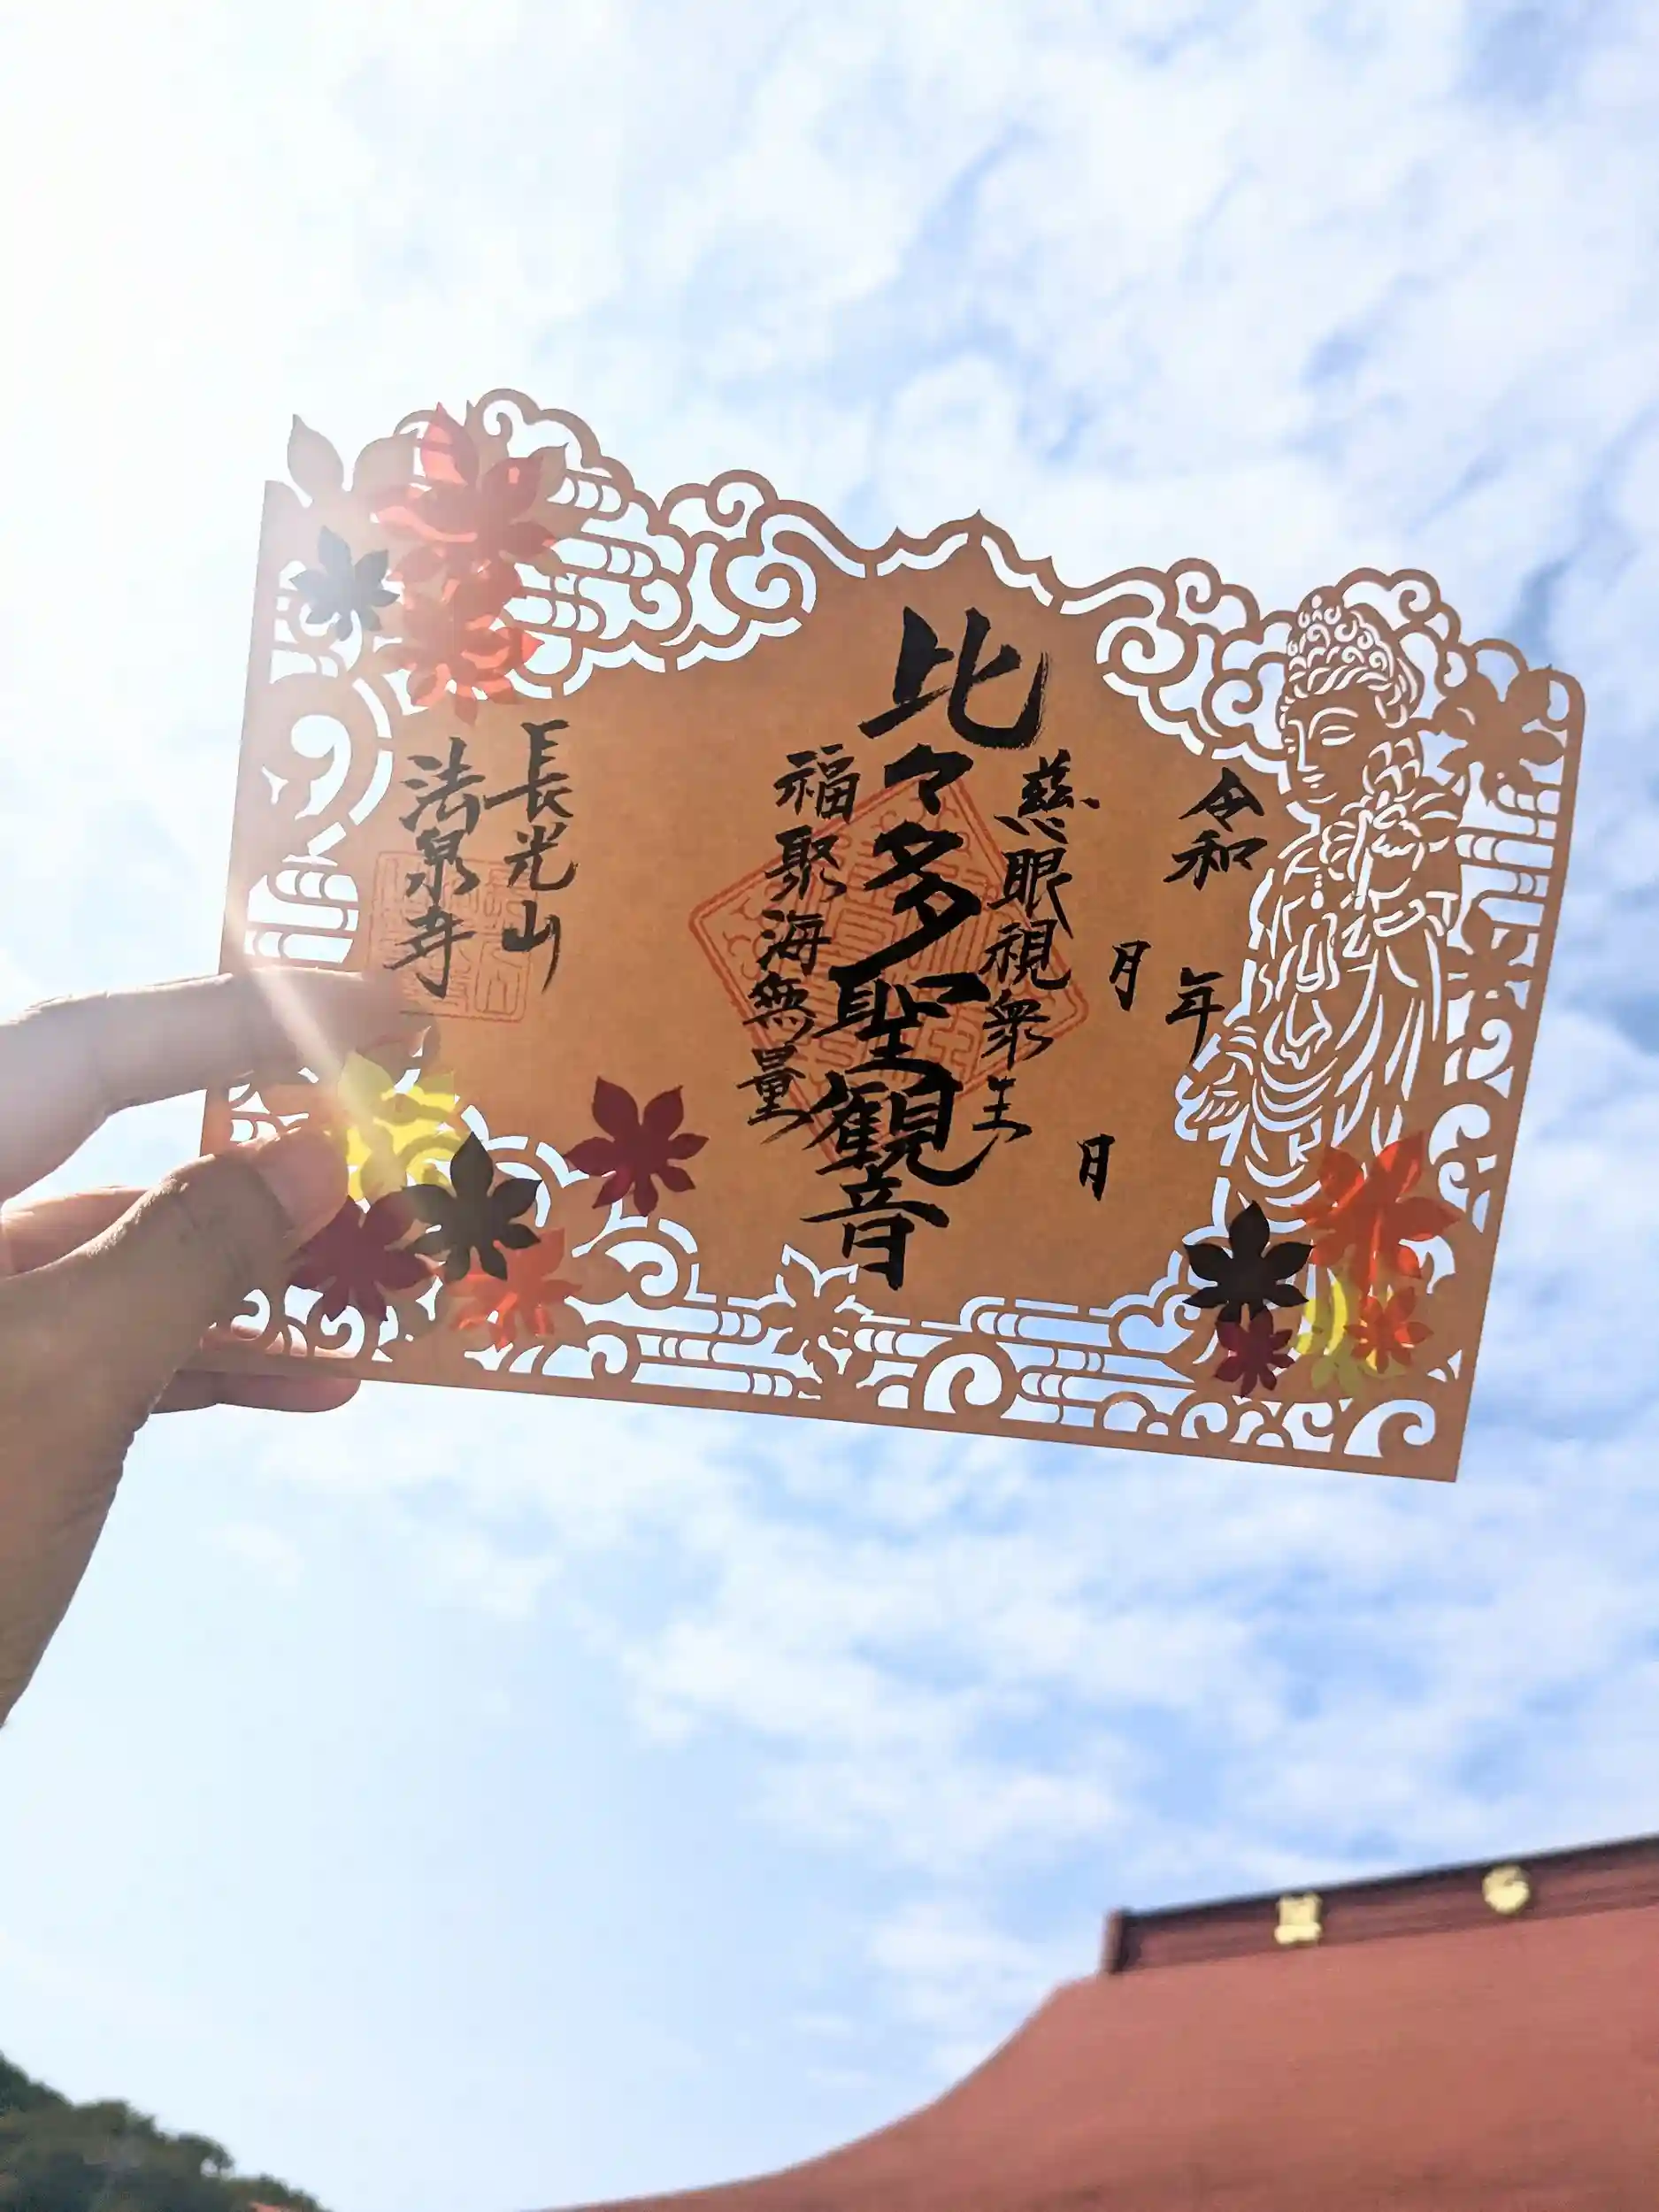 令和 年
月 月
慈眼視衆生
比々多聖観音
福聚海無量
長光山
法泉寺